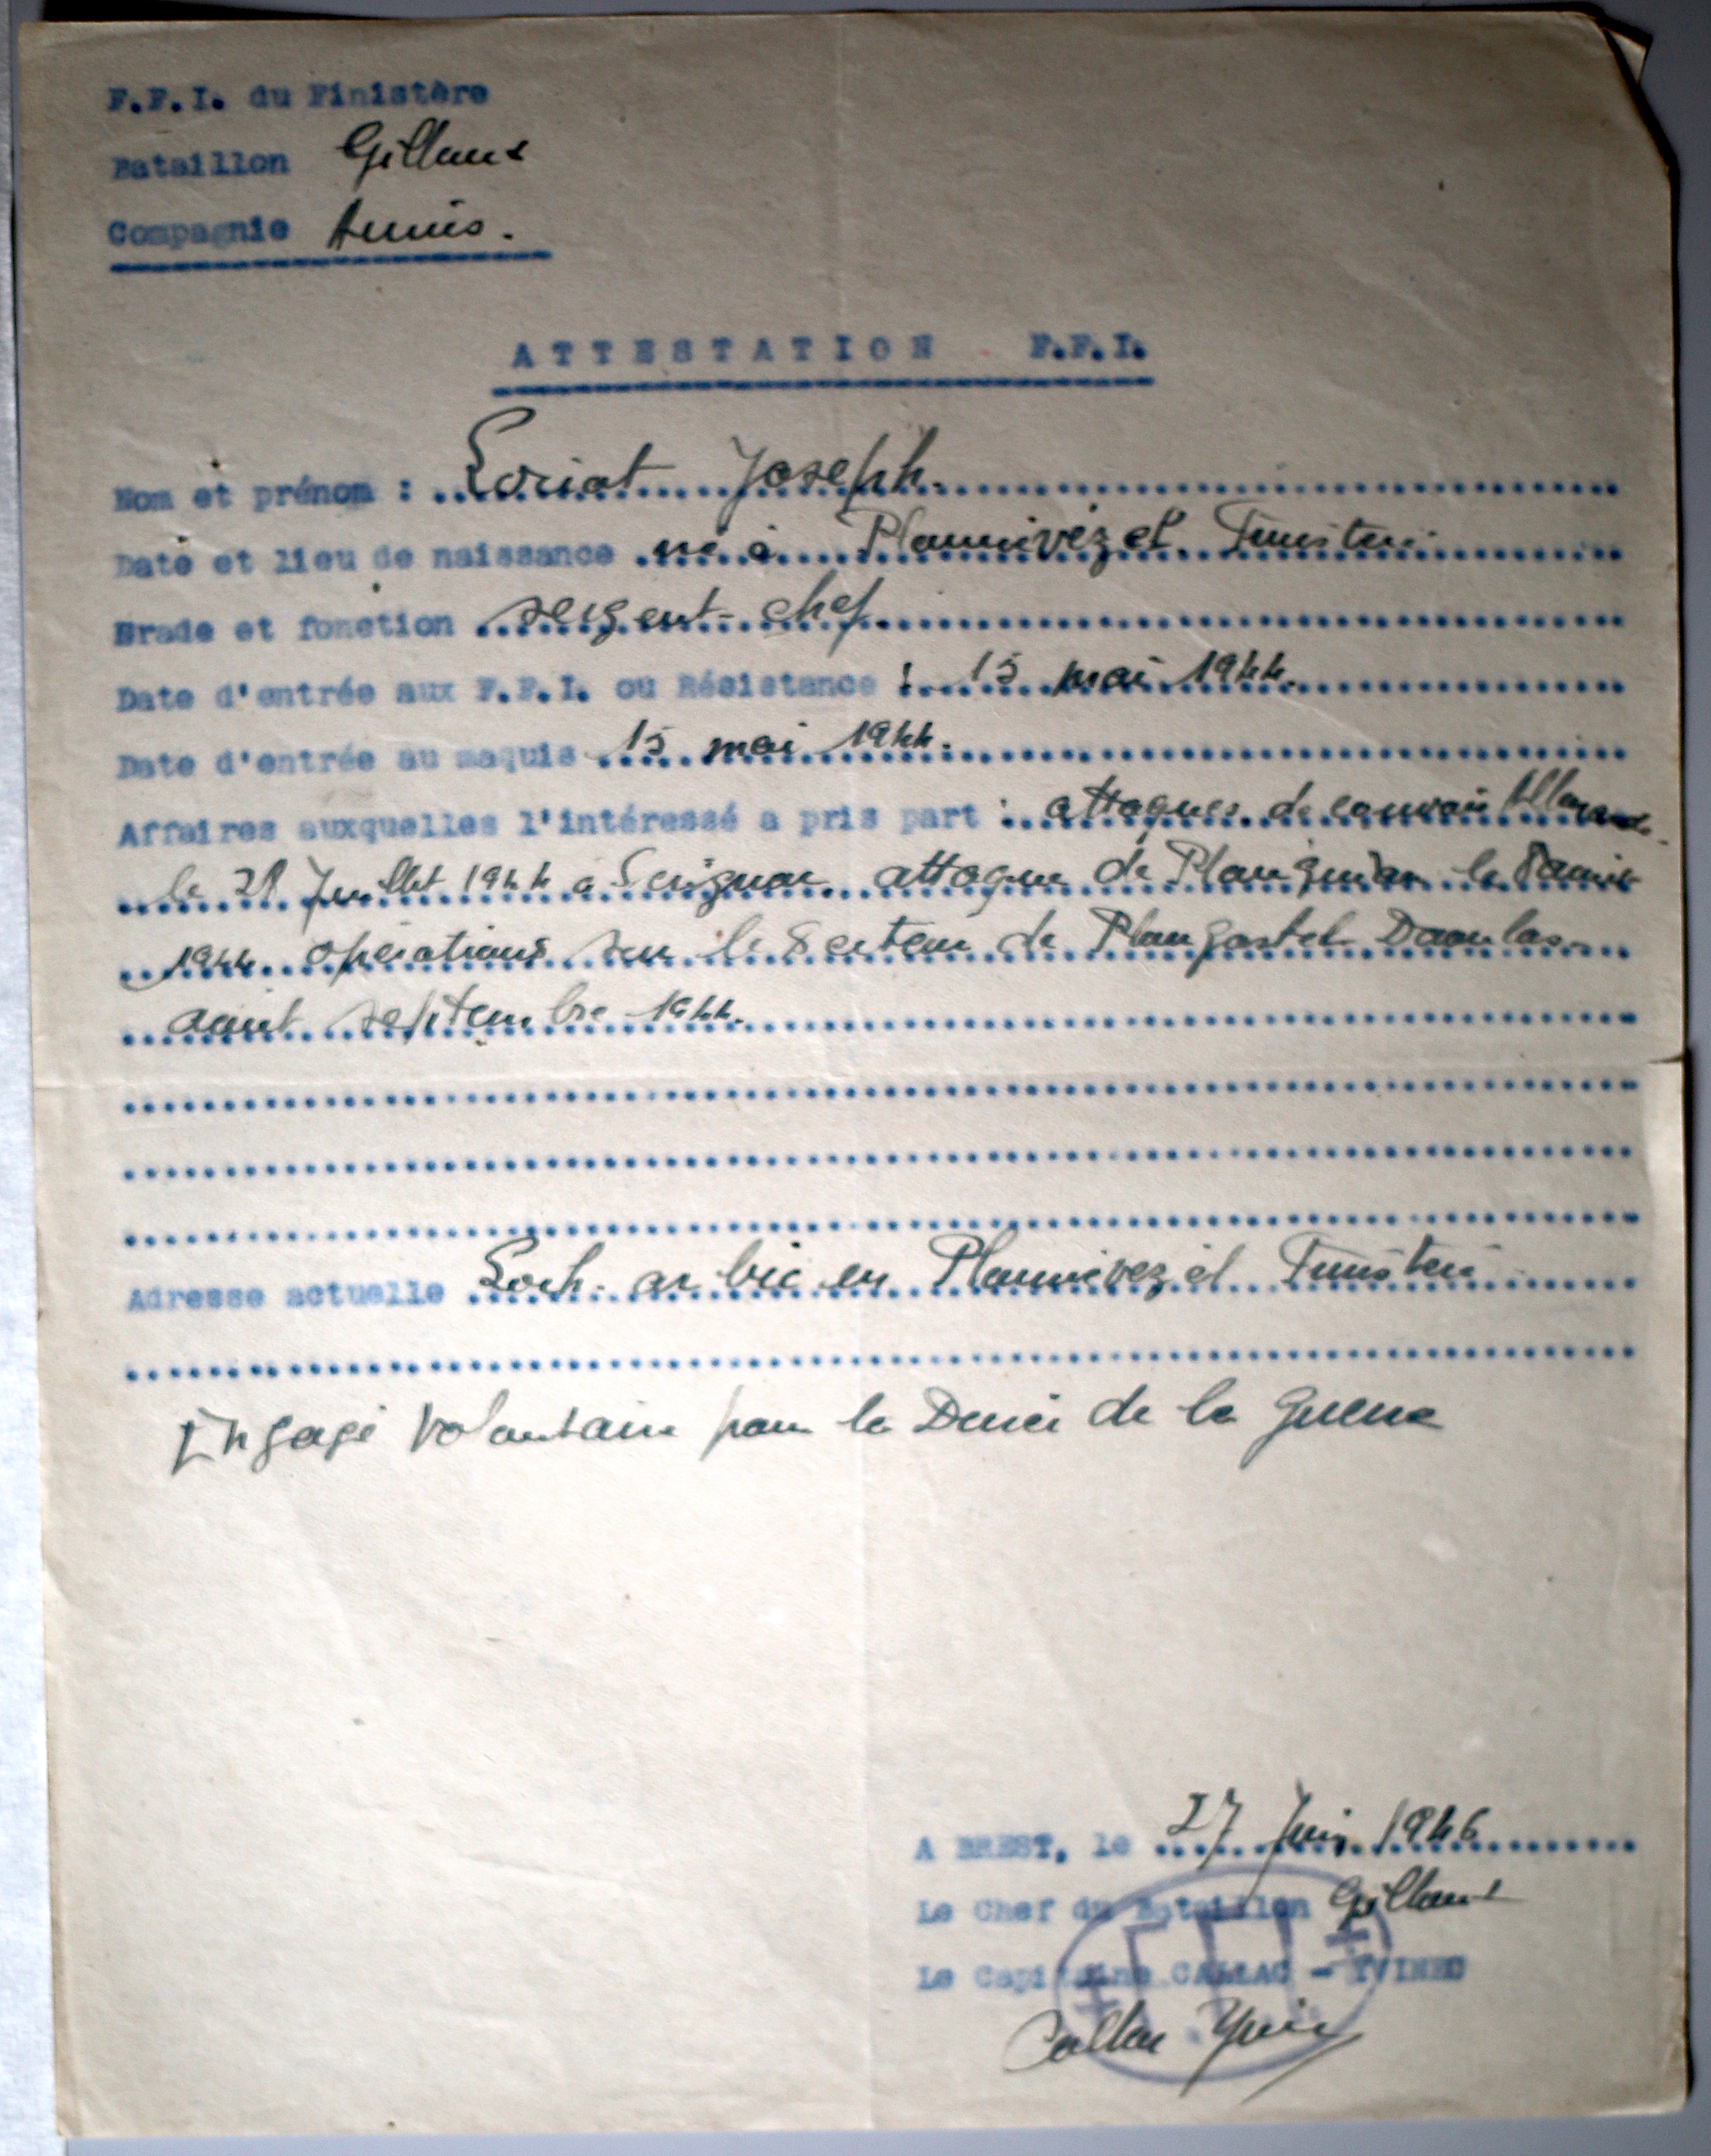 F.F.I. du Finistère
Bataillon Gilloux
Compagnie
ATTESTATION F.F.I.
Nom et prénom : Loriat Joseph.
Date et lieu de naissance né à Plounévézel Finistère
Grade et fonction sergent-chef.
Date d'entrée aux F.F.I. ou Résistance : 15 mai 1944.
Date d'entrée au maquis 15 mai 1944.
Affaires auxquelles l'intéressé a pris part : attaques de convoi Allemands
le 28 Juillet 1944 à Scrignac attaque de le 8 août
1944 opérations sur le secteur de Plougastel Daoulas
août septembre 1944.
Adresse actuelle Loch-ar-bic en Plounévézel Finistère
Engagé Volontaire pour la Durée de la Guerre
A BREST, le 27 Juin 1946
Le Chef du Bataillon Gilloux
Le Capitaine CALLAC - YVINEC
Callac Yvinec